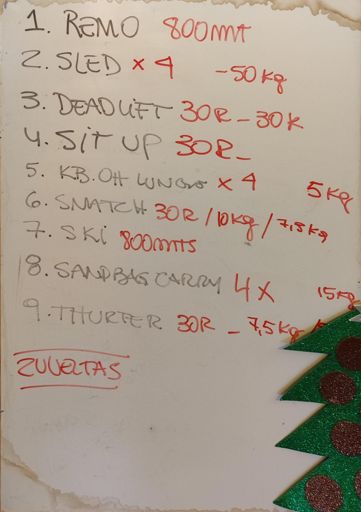 1. REMO 800mt
2. SLED x 4 -50Kg
3. DEADLIFT 30R - 30K
4. SIT UP 30R_
5. KB.OH LUNGES x 4 5Kg
6. SNATCH 30R / 10Kg / 7,5Kg
7. SKi 800mts
8. SANDBAG CARRY 4X 15Kg
9. THURTER 30R - 7,5Kg
2VUELTAS